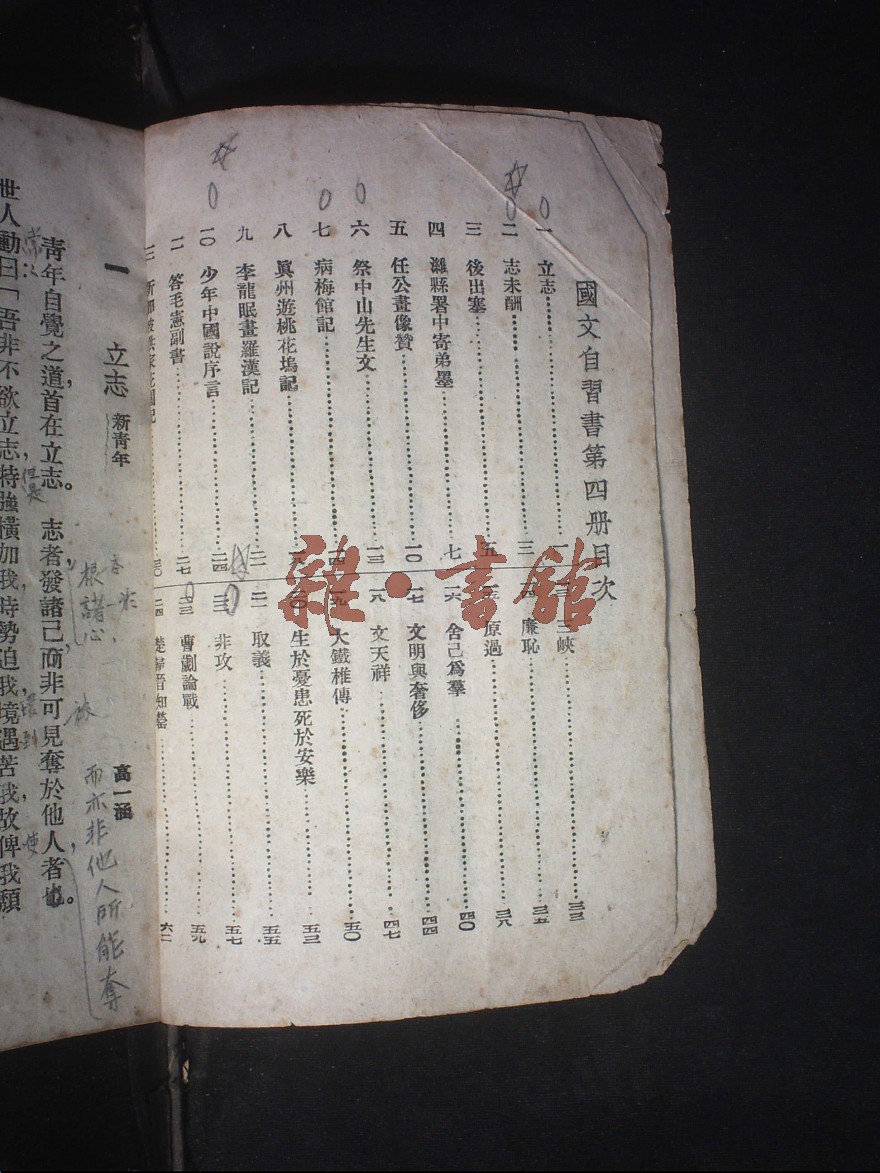 國文自習書第四册目次
一 立志 一
二 志未酬 三
三 後出塞 五
四 濰縣署中寄弟墨 七
五 任公畫像贊 一〇
六 祭中山先生文 一三
七 病梅館記 一四
八 眞州遊桃花塢記
九 李龍眠畫羅漢記 二一
一〇 少年中國說序言 二四
一一 答毛憲副書 二七
三〇
三峽 三三
一四 廉恥 三五
一五 原過 三八
一六 舍己爲羣 四〇
一七 文明與奢侈 四四
一八 文天祥 四七
一九 大鐵椎傳 五〇
二〇 生於憂患死於安樂 五三
二一 取義 五五
二二 非攻 五七
二三 曹劌論戰 五九
二四 六二
雜·書館
一 立志 新青年 高一涵
青年自覺之道，首在立志。志者發諸己，而非可見奪於他人者也。
世人動曰：「吾非不欲立志，特強橫加我，時勢迫我，境遇苦我，故俾我頹
根諸心
而亦非他人所能奪
但是
使
被